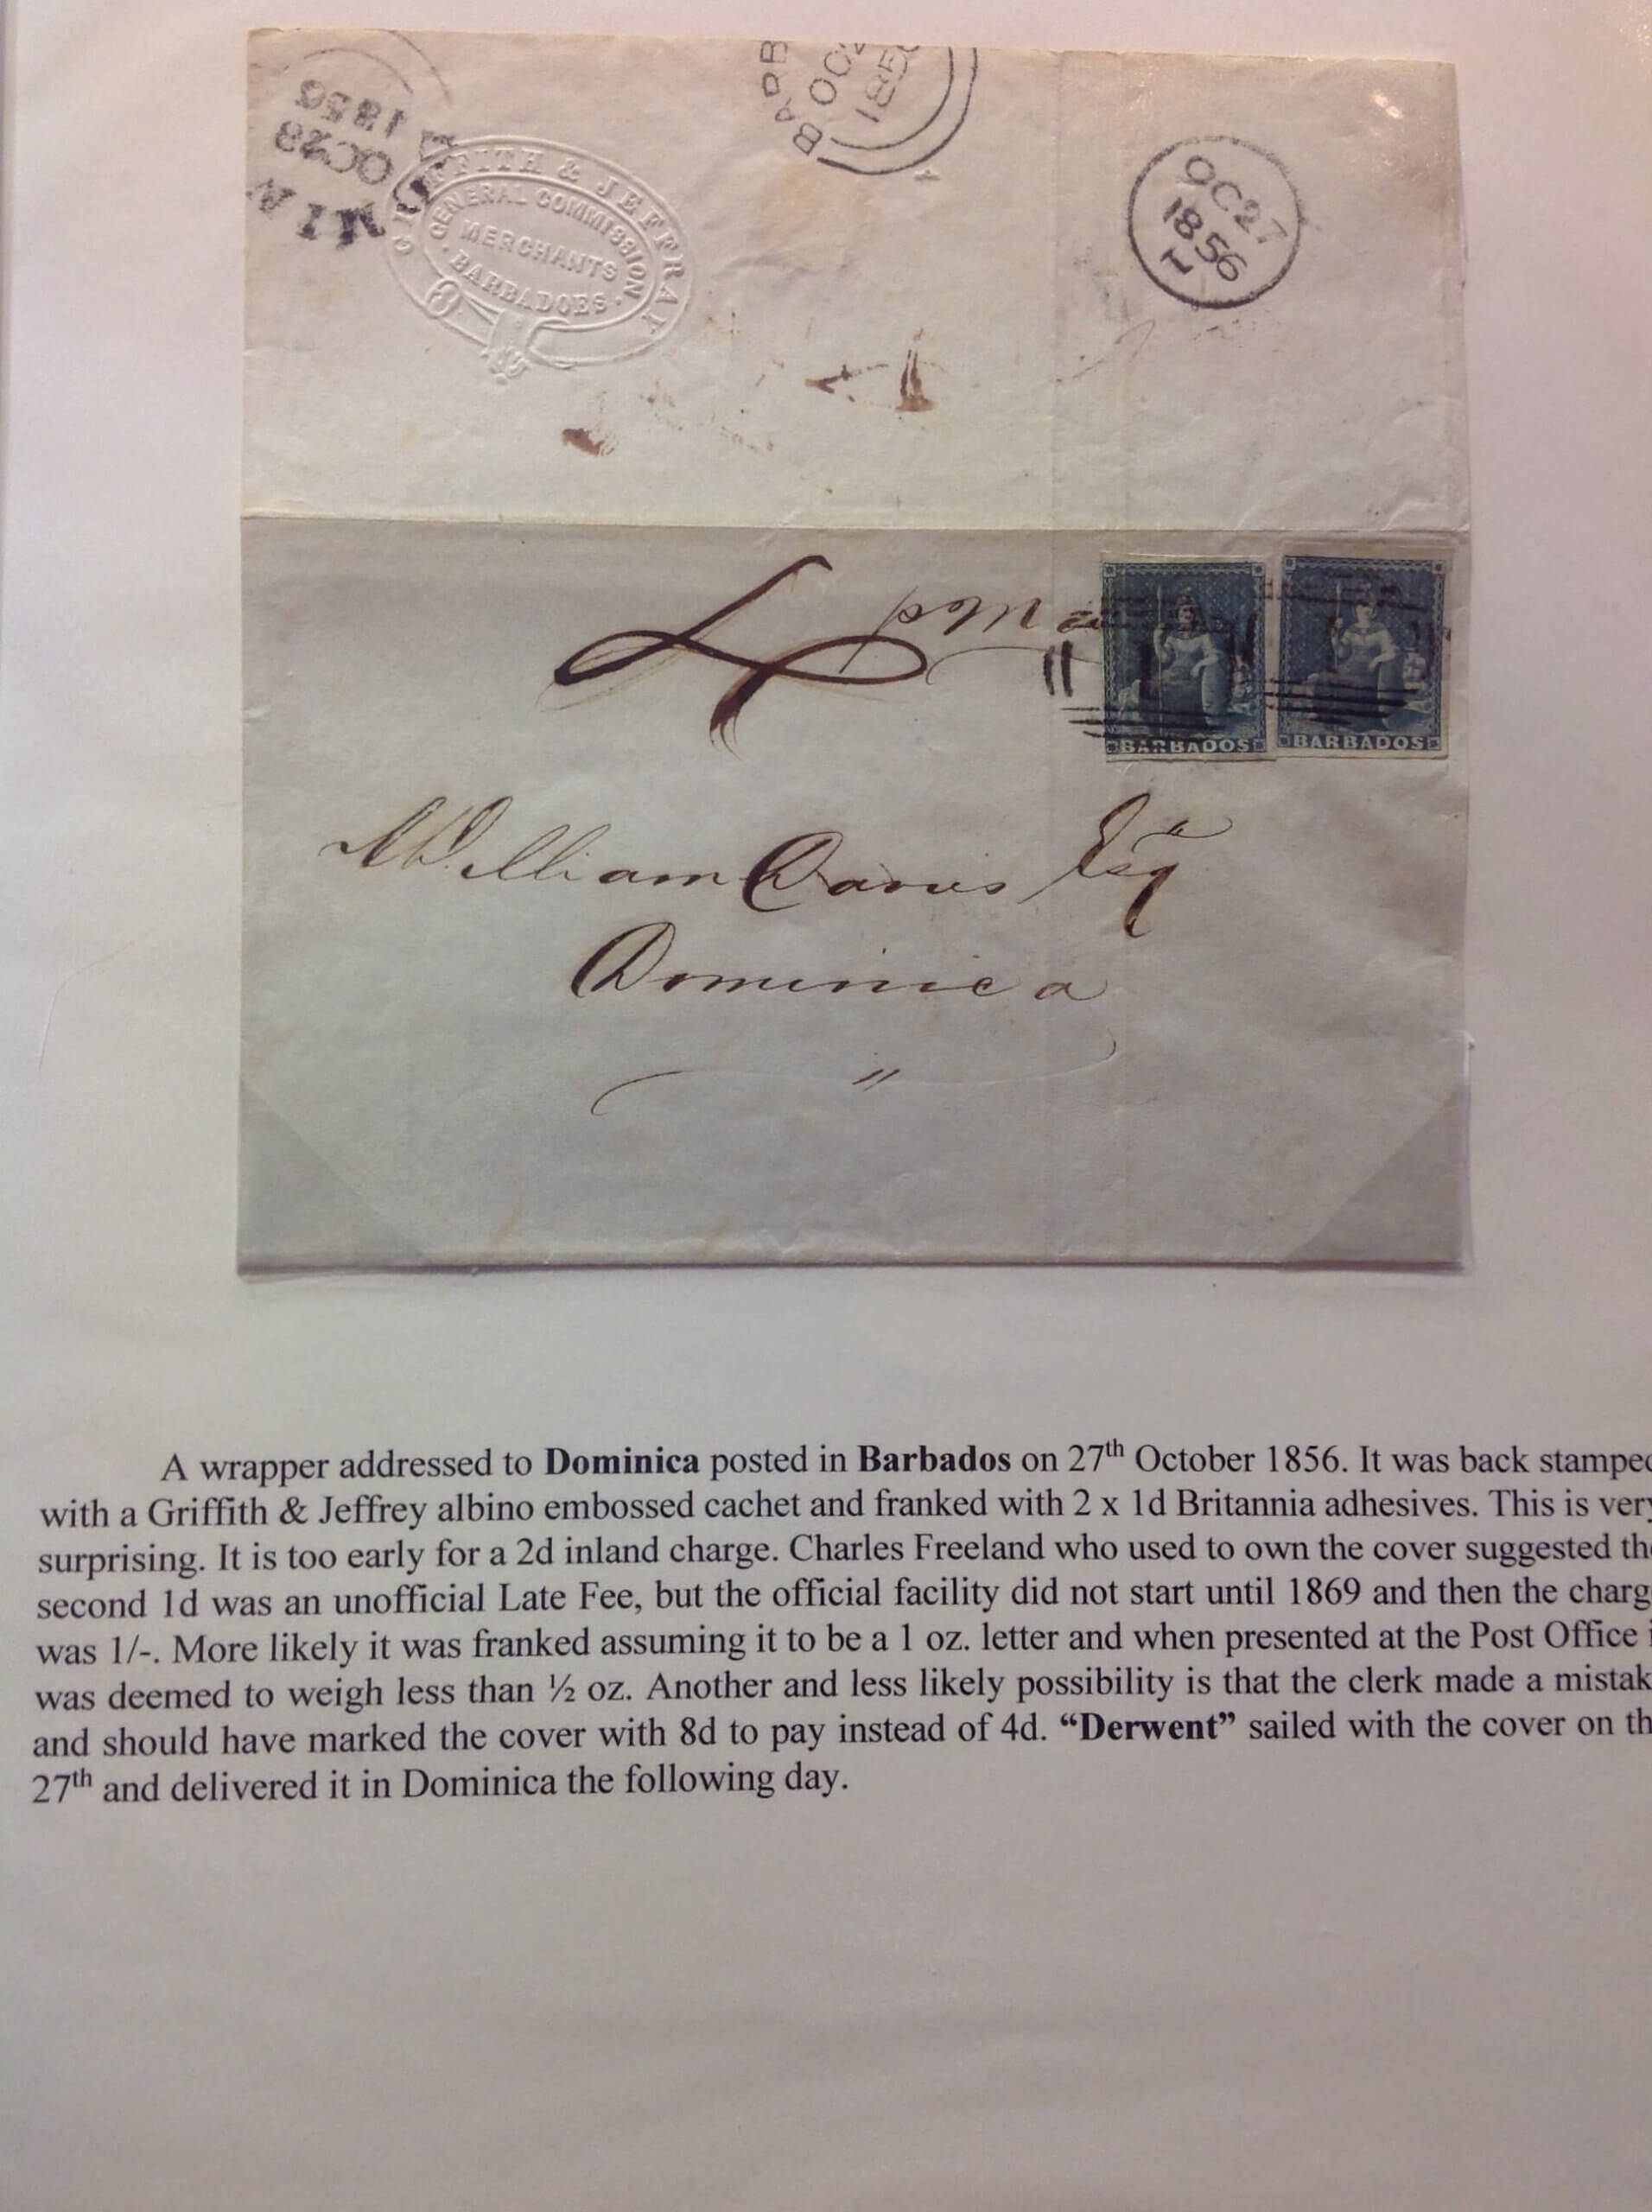 1856
OC28
BARB
OC2
185
A
GRIFFITH & JEFFRAY
GENERAL COMMISSION
MERCHANTS
BARBADOES
OC27
1856
4
BARBADOS
BARBADOS
William Davies Esq
Dominica
A wrapper addressed to Dominica posted in Barbados on 27th October 1856. It was back stamped
with a Griffith & Jeffrey albino embossed cachet and franked with 2 x 1d Britannia adhesives. This is very
surprising. It is too early for a 2d inland charge. Charles Freeland who used to own the cover suggested the
second 1d was an unofficial Late Fee, but the official facility did not start until 1869 and then the charg
was 1/-. More likely it was franked assuming it to be a 1 oz. letter and when presented at the Post Office i
was deemed to weigh less than ½ oz. Another and less likely possibility is that the clerk made a mistak
and should have marked the cover with 8d to pay instead of 4d. “Derwent” sailed with the cover on th
27th and delivered it in Dominica the following day.